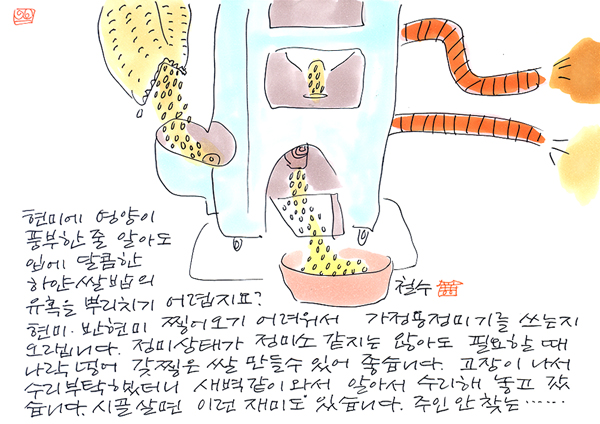 현미에 영양이
풍부한 줄 알아도
입에 달콤한
하얀 쌀밥의
유혹을 뿌리치기 어렵지요?
철수
현미·반현미 찧어오기 어려워서 가정용정미기를 쓰는지
오랩니다. 정미상태가 정미소 같지는 않아도 필요할 때
나락 넣어 갓찧은 쌀 만들수 있어 좋습니다. 고장이 나서
수리부탁했더니 새벽같이 와서 알아서 수리해 놓고 갔
습니다. 시골 살면 이런 재미도 있습니다. 주인 안 찾는……